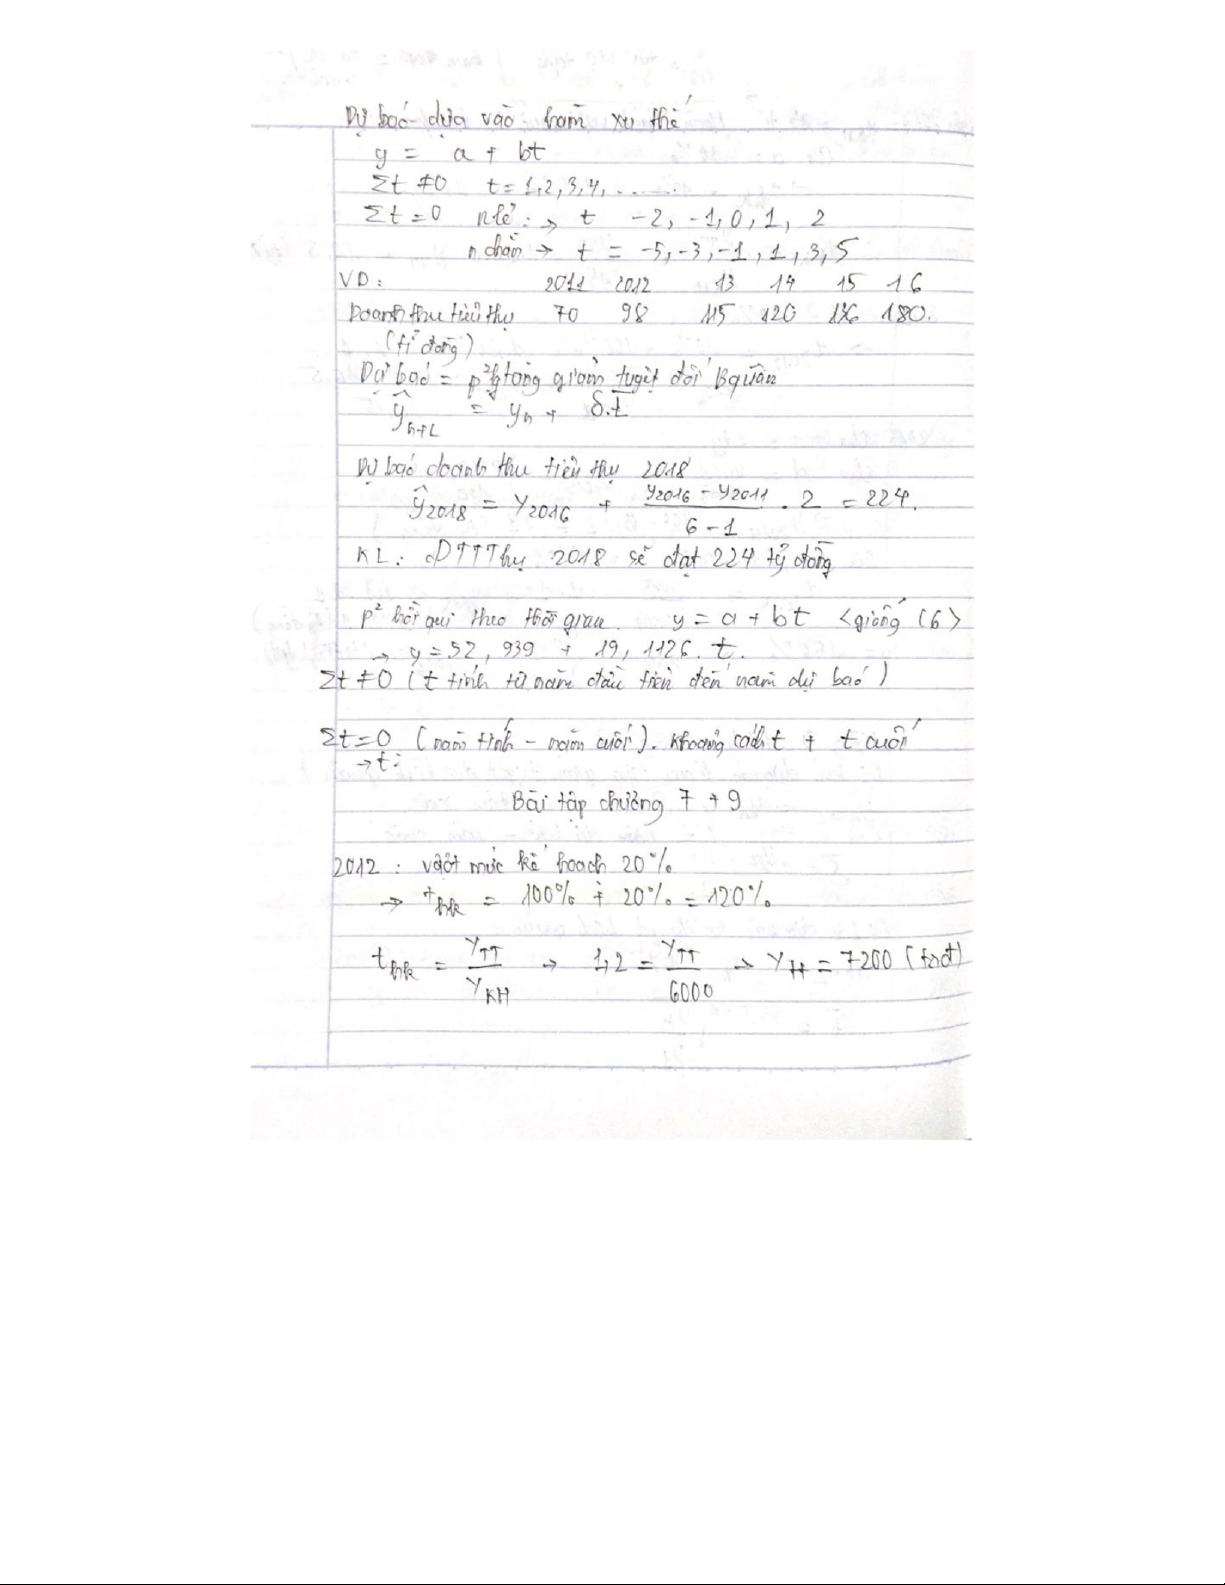 Dự báo dựa vào hàm xu thế
y = a + bt
Σt ≠0 t = 1,2,3,4, ........
Σt = 0 n lẻ : → t -2, -1, 0, 1, 2
n chẵn → t = -5, -3, -1, 1, 3, 5
VD : 2011 2012 13 14 15 16
Doanh thu tiêu thụ 70 98 115 120 136 180.
(tỉ đồng)
Dự báo = p² tăng giảm tuyệt đối Bquân
ŷn+L = yn + δ̄.L
Dự báo doanh thu tiêu thụ 2018
ŷ2018 = y2016 + (y2016 - y2011)/(6 - 1) . 2 = 224.
KL : DTTThụ 2018 sẽ đạt 224 tỷ đồng
p² hồi qui theo thời gian. y = a + bt <giống (6)>
→ y = 52, 939 + 19, 1126. t.
Σt ≠ 0 ( t tính từ năm đầu tiên đến năm dự báo )
Σt = 0 ( năm tính - năm cuối ). Khoảng cách t + t cuối
→ t:
Bài tập chương 7 + 9
2012 : vượt mức kế hoạch 20%
→ thk = 100% + 20% = 120%
thk = yTT/yKH → 1,2 = yTT/6000 → yTT = 7200 (tađ)